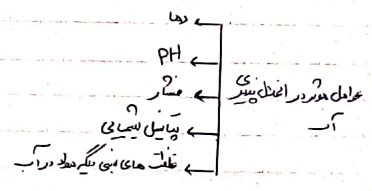 عوامل موثر در انحلال پذیری
آب
دما
PH
فشار
پتانسیل شیمیایی
غلظت های نسبی دیگر مواد در آب